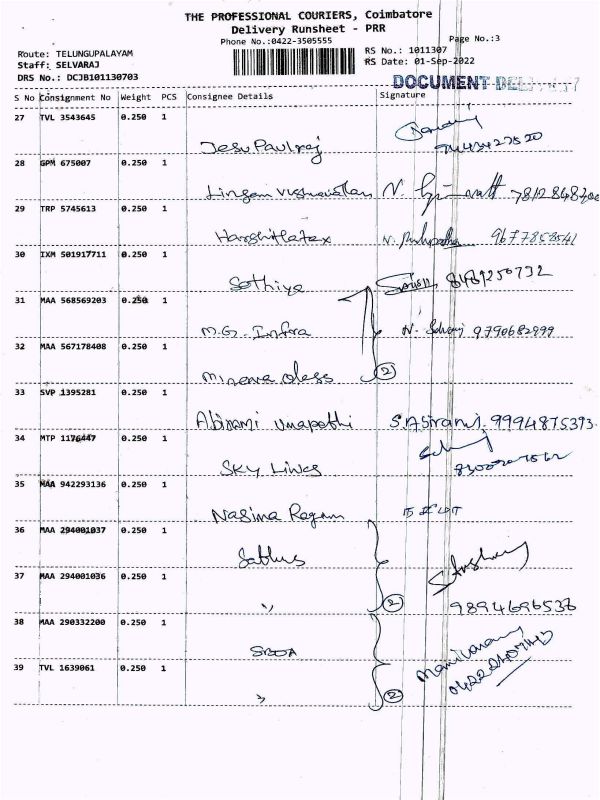 THE PROFESSIONAL COURIERS, Coimbatore
Delivery Runsheet - PRR
Phone No.:0422-3505555
Page No.:3
Route: TELUNGUPALAYAM
RS No.: 1011307
Staff: SELVARAJ
RS Date: 01-Sep-2022
DRS No.: DCJB101130703
DOCUMENT
S No Consignment No Weight PCS Consignee Details Signature
27 TVL 3543645 0.250 1
Jesu Paulraj
28 GPM 675007 0.250 1
29 TRP 5745613 0.250 1
9677858541
30 IXM 501917711 0.250 1
Sathiya 8489250732
31 MAA 568569203 0.250 1
M.G. Infra 9790682999
32 MAA 567178408 0.250 1
2
33 SVP 1395281 0.250 1
Abirami Umapathi S.Abirami. 9994875393.
34 MTP 1176447 0.250 1
SKY Lines
35 MAA 942293136 0.250 1
Nasima Begam
36 MAA 294001037 0.250 1
37 MAA 294001036 0.250 1
" 2 9894696536
38 MAA 290332200 0.250 1
39 TVL 1639061 0.250 1
" 2